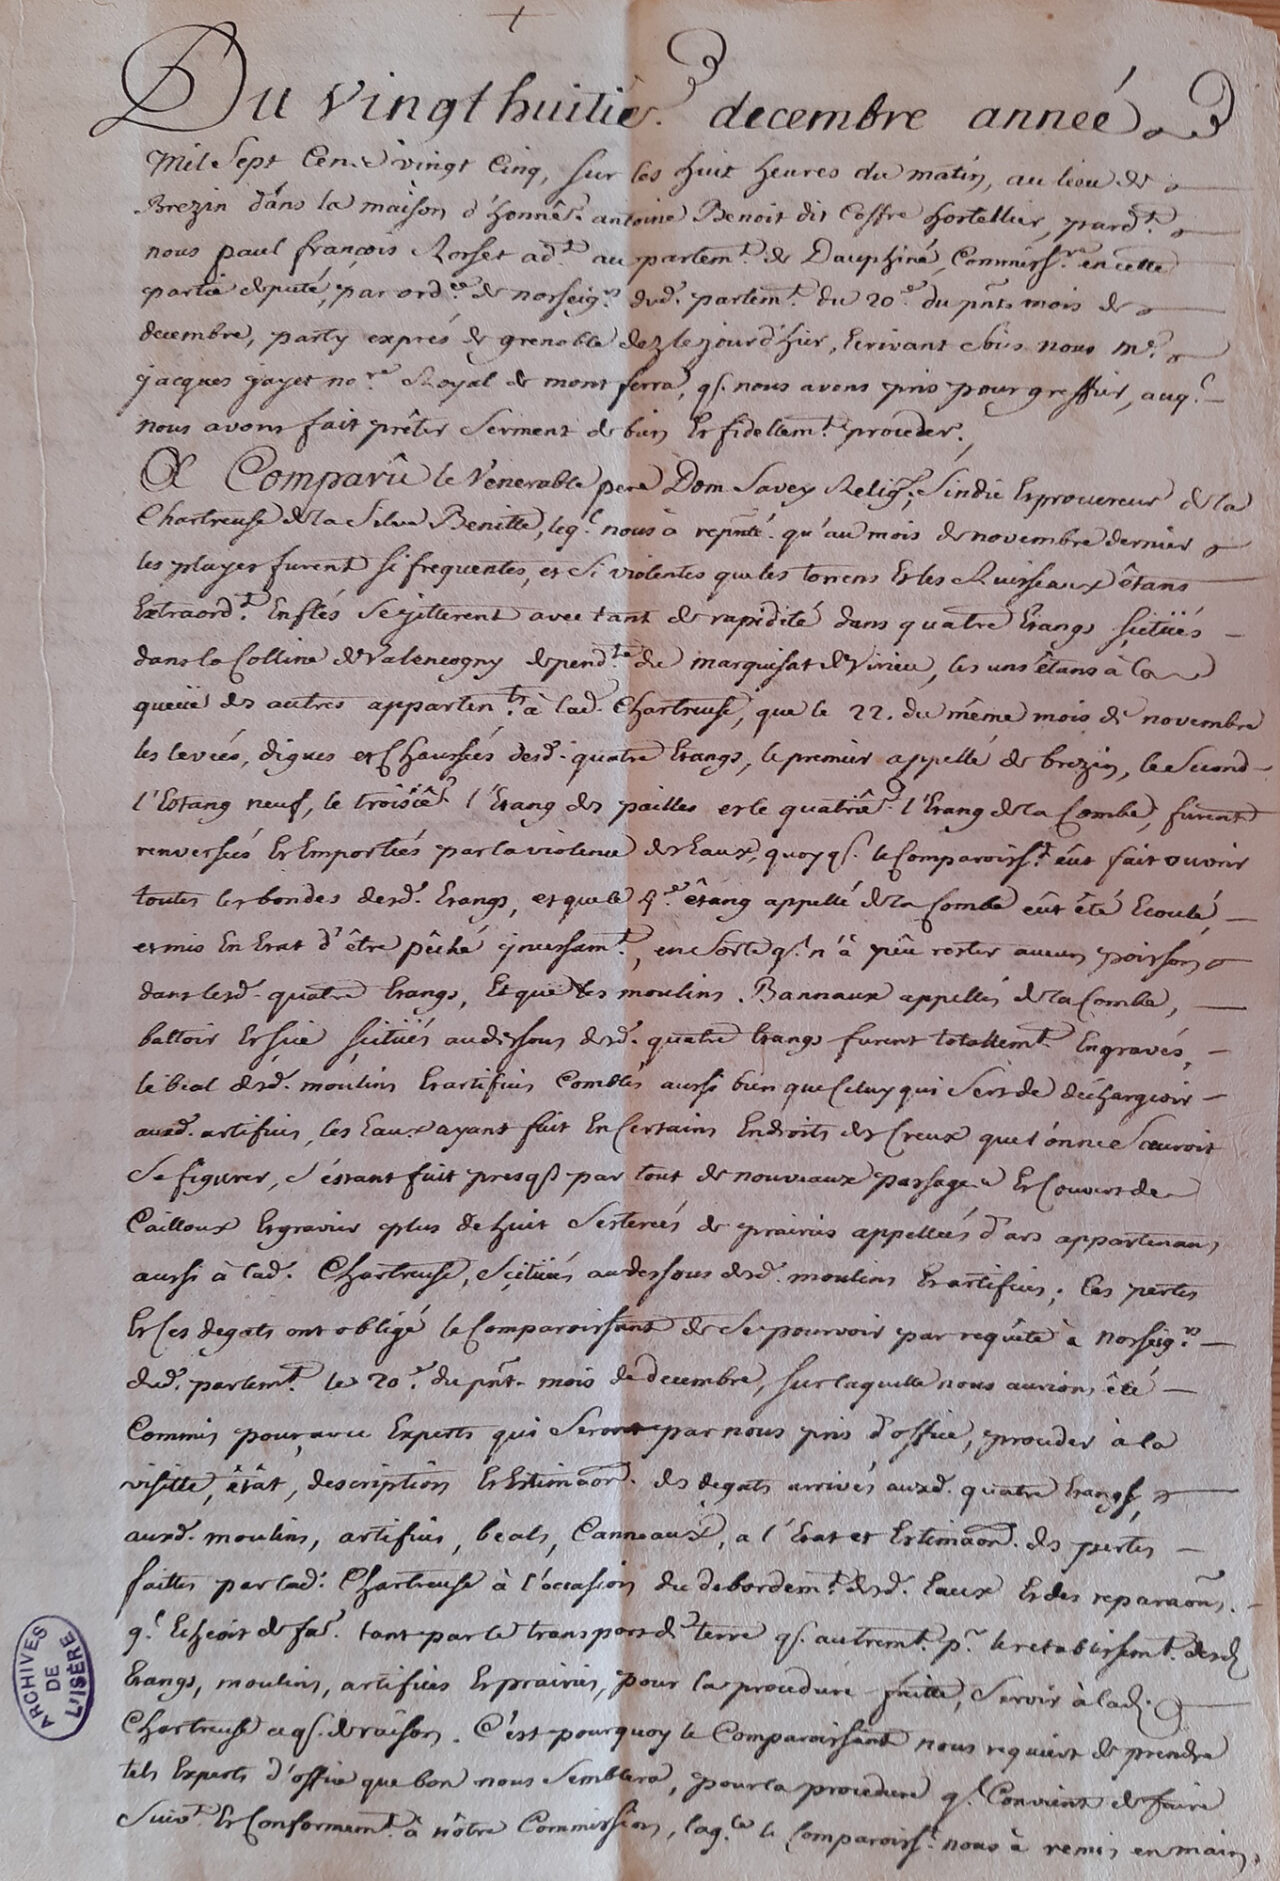 Du vingt huitiē. decembre année
Mil Sept Cent vingt Cinq, sur les huit heures du matin, au lieu de
Brezin dans la maison d'honnê. antoine Benoit dit Coffre hortellier, pard.t
nous paul françois Rorset ad.t au parlem.t de Dauphiné, Commiss.re en cette
partie deputé, par ord.ce de norseig.rs dud. parlem.t du 20.e du pñt mois de
decembre, party exprés de grenoble dez le jourd'hier, Ecrivant sous nous m.e
jacques jayet no.re Royal de mont ferra, q. nous avons pris pour greffier, auq.l
nous avons fait prêter Serment de bien Et fidellem.t proceder.
A Comparû le Venerable pere Dom Savey Relig. Sindic Et procureur de la
Chartreuse de la Silve Benitte, leq.l nous à repñté qu'au mois de novembre dernier
les pluyes furent si frequentes, et si violentes que les torrens Et les Ruisseaux êtans
Extraord.t Enflés Se jetterent avec tant de rapidité dans quatre Etangs scitüés
dans la Colline de Valencogny depend.te du marquisat de Virieu, les uns êtans à la
queüe des autres apparten.ts à lad. Chartreuse, que le 22. du même mois de novembre
les levées, digues et Chaussées desd. quatre Etangs, le premier appellé de brezin, le Second
l'Estang neuf, le troisiē. l'Etang des pailles et le quatriē. l'Etang de la Combe, furent
renversés Et Emportés par la violence des Eaux, quoy q. le Comparoiss.t eût fait ouvrir
toutes les bondes desd. Etangs, et que le 4.e êtang appellé de la Combe eût été Ecoulé,
et mis En Etat d'être pêché jncessam.t, en sorte q. n'à pêu rester aucun poisson
dans lesd. quatre Etangs, Et que les moulins Bannaux appellés de la Combe,
battoir Et scie scitüés audessous desd. quatre Etangs furent totallem.t Engravés,
le béal desd. moulins Et artifices Comblés aussi bien que Celuy qui Sert de déchargeoir
auxd. artifices, les Eaux ayant fait En Certains Endroits des Creux que l'on ne Scauroit
Se figurer, S'étant fait presq. par tout de nouveaux passages Et Couvert de
Cailloux Et gravier plus de huit Seterées de prairies appellées d'ars appartenans
aussi à lad. Chartreuse, Scitüées audessous desd. moulins Et artifices; Ces pertes
Et Ces degats ont obligé le Comparoissant de Se pourvoir par requête à norseig.rs
dud. parlem.t le 20.e du pñt mois de decembre, sur laquelle nous aurions êté
Commis pour avec Experts qui Seront par nous pris d'office, proceder à la
visitte, êtât, description Et Estimaōn. des degats arrivés auxd. quatre Etangs,
auxd. moulins, artifices, beals, Canneaux, a l'Etat et Estimaōn. des pertes
faittes par lad. Chartreuse à l'occasion du debordem.t desd. Eaux Et des reparaōns.
q.l Echeoit de fa.e tant par le transport de terre q. autrem.t p.r le retablissem.t desd.
Etangs, moulins, artifices Et prairies, pour la procedure faitte, servir à lad.
Chartreuse ce q. de raison. C'est pourquoy le Comparoissant nous requiert de prendre
tels Experts d'office que bon nous Semblera, pour la procedure q.l Convient de faire
Suiv.t Et Conformem.t à nôtre Commission, laq.le le Comparoiss.t nous à remis en main,
ARCHIVES
DE
L'ISÈRE